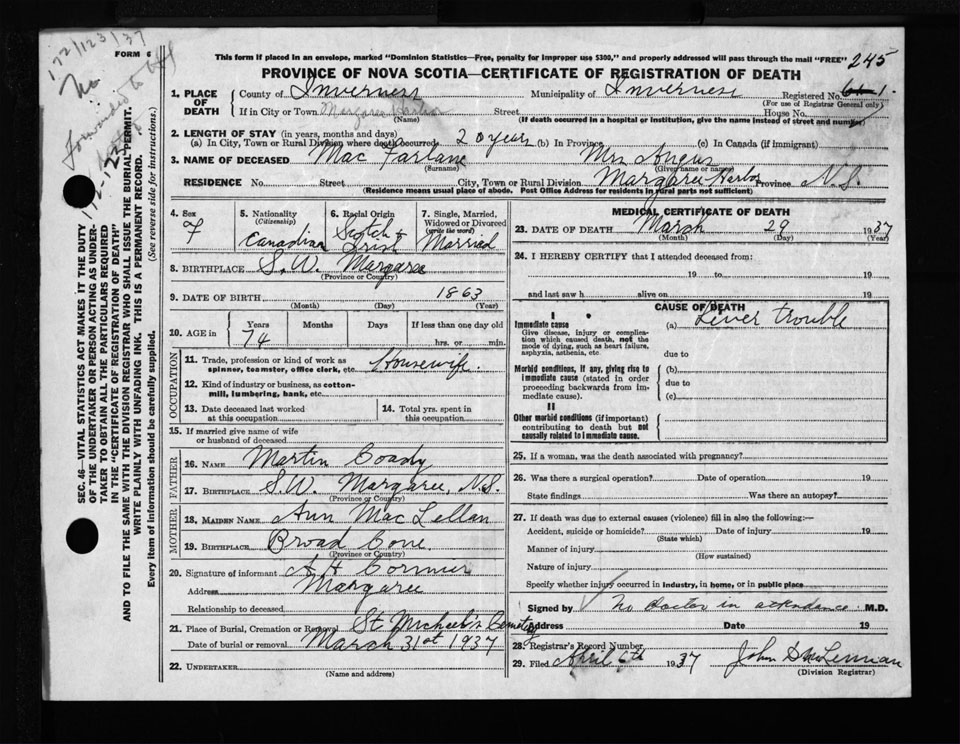 172/123/37
FORM 6
No
Forwarded to
172-123
This form if placed in an envelope, marked "Dominion Statistics—Free, penalty for improper use $300," and properly addressed will pass through the mail "FREE" 245
PROVINCE OF NOVA SCOTIA—CERTIFICATE OF REGISTRATION OF DEATH
SEC. 46—VITAL STATISTICS ACT MAKES IT THE DUTY
OF THE UNDERTAKER OR PERSON ACTING AS UNDER-
TAKER TO OBTAIN ALL THE PARTICULARS REQUIRED
IN THE "CERTIFICATE OF REGISTRATION OF DEATH"
AND TO FILE THE SAME WITH THE DIVISION REGISTRAR WHO SHALL ISSUE THE BURIAL PERMIT.
WRITE PLAINLY WITH UNFADING INK. THIS IS A PERMANENT RECORD.
Every item of information should be carefully supplied. (See reverse side for instructions.)
1. PLACE OF DEATH County of Inverness Municipality of Inverness Registered No. 1
(For use of Registrar General only)
If in City or Town Margaree Harbor Street House No.
(Name) (If death occurred in a hospital or institution, give the name instead of street and number)
2. LENGTH OF STAY (in years, months and days)
(a) In City, Town or Rural Division where death occurred 20 years (b) In Province (c) In Canada (if immigrant)
3. NAME OF DECEASED Mac Farlane Mrs Angus
(Surname) (Given name or names)
RESIDENCE No. Street City, Town or Rural Division Margaree Harbor Province N.S.
(Residence means usual place of abode. Post Office Address for Residents in rural parts not sufficient)
4. Sex
F
5. Nationality
(Citizenship)
Canadian
6. Racial Origin
Scotch &
Irish
7. Single, Married,
Widowed or Divorced
(write the word)
Married
8. BIRTHPLACE S.W. Margaree
(Province or Country)
9. DATE OF BIRTH 1863
(Month) (Day) (Year)
10. AGE in Years Months Days If less than one day old
74 hrs. or min.
OCCUPATION
11. Trade, profession or kind of work as
spinner, teamster, office clerk, etc. Housewife.
12. Kind of industry or business, as cotton-
mill, lumbering, bank, etc.
13. Date deceased last worked
at this occupation
14. Total yrs. spent in
this occupation
15. If married give name of wife
or husband of deceased
FATHER
16. NAME Martin Coady
17. BIRTHPLACE S.W. Margaree, N.S.
(Province or Country)
MOTHER
18. MAIDEN NAME Ann Mac Lellan
19. BIRTHPLACE Broad Cove.
(Province or Country)
20. Signature of informant A H Cormier
Address Margaree
Relationship to deceased
21. Place of Burial, Cremation or Removal St. Michael's Cemetery
Date of burial or removal March 31st 1937
22. UNDERTAKER
(Name and address)
MEDICAL CERTIFICATE OF DEATH
23. DATE OF DEATH March 29 1937
(Month) (Day)
24. I HEREBY CERTIFY that I attended deceased from:
19 to 19
and last saw h alive on 19
CAUSE OF DEATH
I
Immediate cause (a) Liver trouble
Give disease, injury or complica-
tion which caused death, not the
mode of dying, such as heart failure,
asphyxia, asthenia, etc.
due to
Morbid conditions, if any, giving rise to
immediate cause (stated in order
proceeding backwards from im-
mediate cause)
(b)
due to
(c)
II
Other morbid conditions (if important)
contributing to death but not
causally related to immediate cause.
25. If a woman, was the death associated with pregnancy?
26. Was there a surgical operation? Date of operation 19
State findings Was there an autopsy?
27. If death was due to external causes (violence) fill in also the following:—
Accident, suicide or homicide? Date of injury 19
(State which)
Manner of injury
(How sustained)
Nature of injury
Specify whether injury occurred in industry, in home, or in public place
Signed by No Doctor in attendance. M.D.
Address Date 19
28. Registrar's Record Number
29. Filed April 6th 1937 John D McLennan
(Division Registrar)